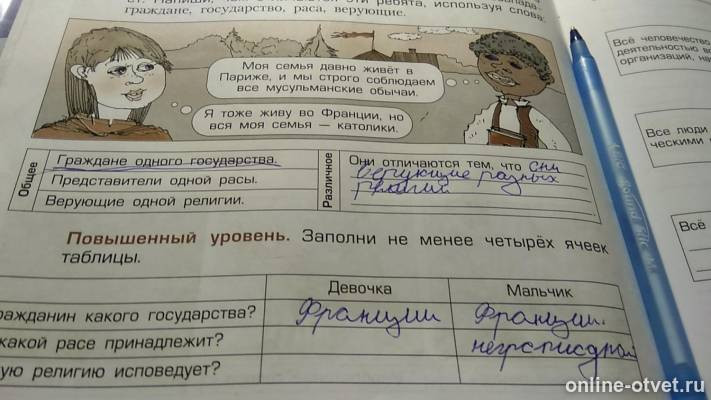 ст. Напиши, чем отличаются эти ребята, используя слова:
граждане, государство, раса, верующие.
Моя семья давно живёт в
Париже, и мы строго соблюдаем
все мусульманские обычаи.
Я тоже живу во Франции, но
вся моя семья — католики.
Общее
Граждане одного государства.
Представители одной расы.
Верующие одной религии.
Различное
Они отличаются тем, что они
верующие разных
религий
Повышенный уровень. Заполни не менее четырёх ячеек
таблицы.
Девочка
Мальчик
ражданин какого государства?
Франции
Франции.
какой расе принадлежит?
негроидной
ую религию исповедует?
Всё человечество
деятельностью во
организаций, на
Все люди
ческими
Всё
online-otvet.ru